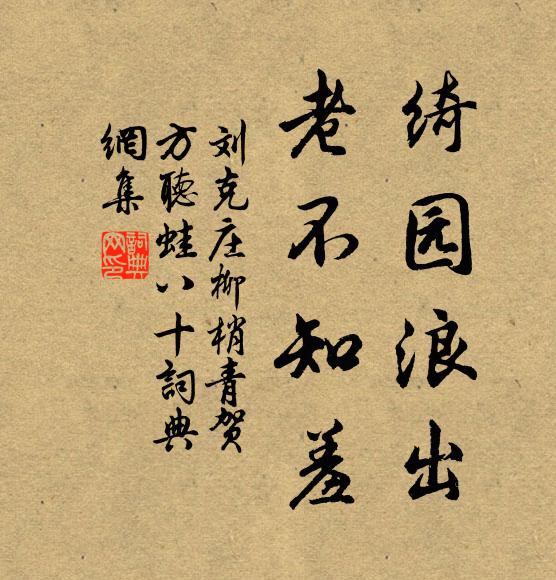 绮园浪出
老不知羞
刘克庄柳梢青贺
方聽蛙八十詞典
網集
詞典网印